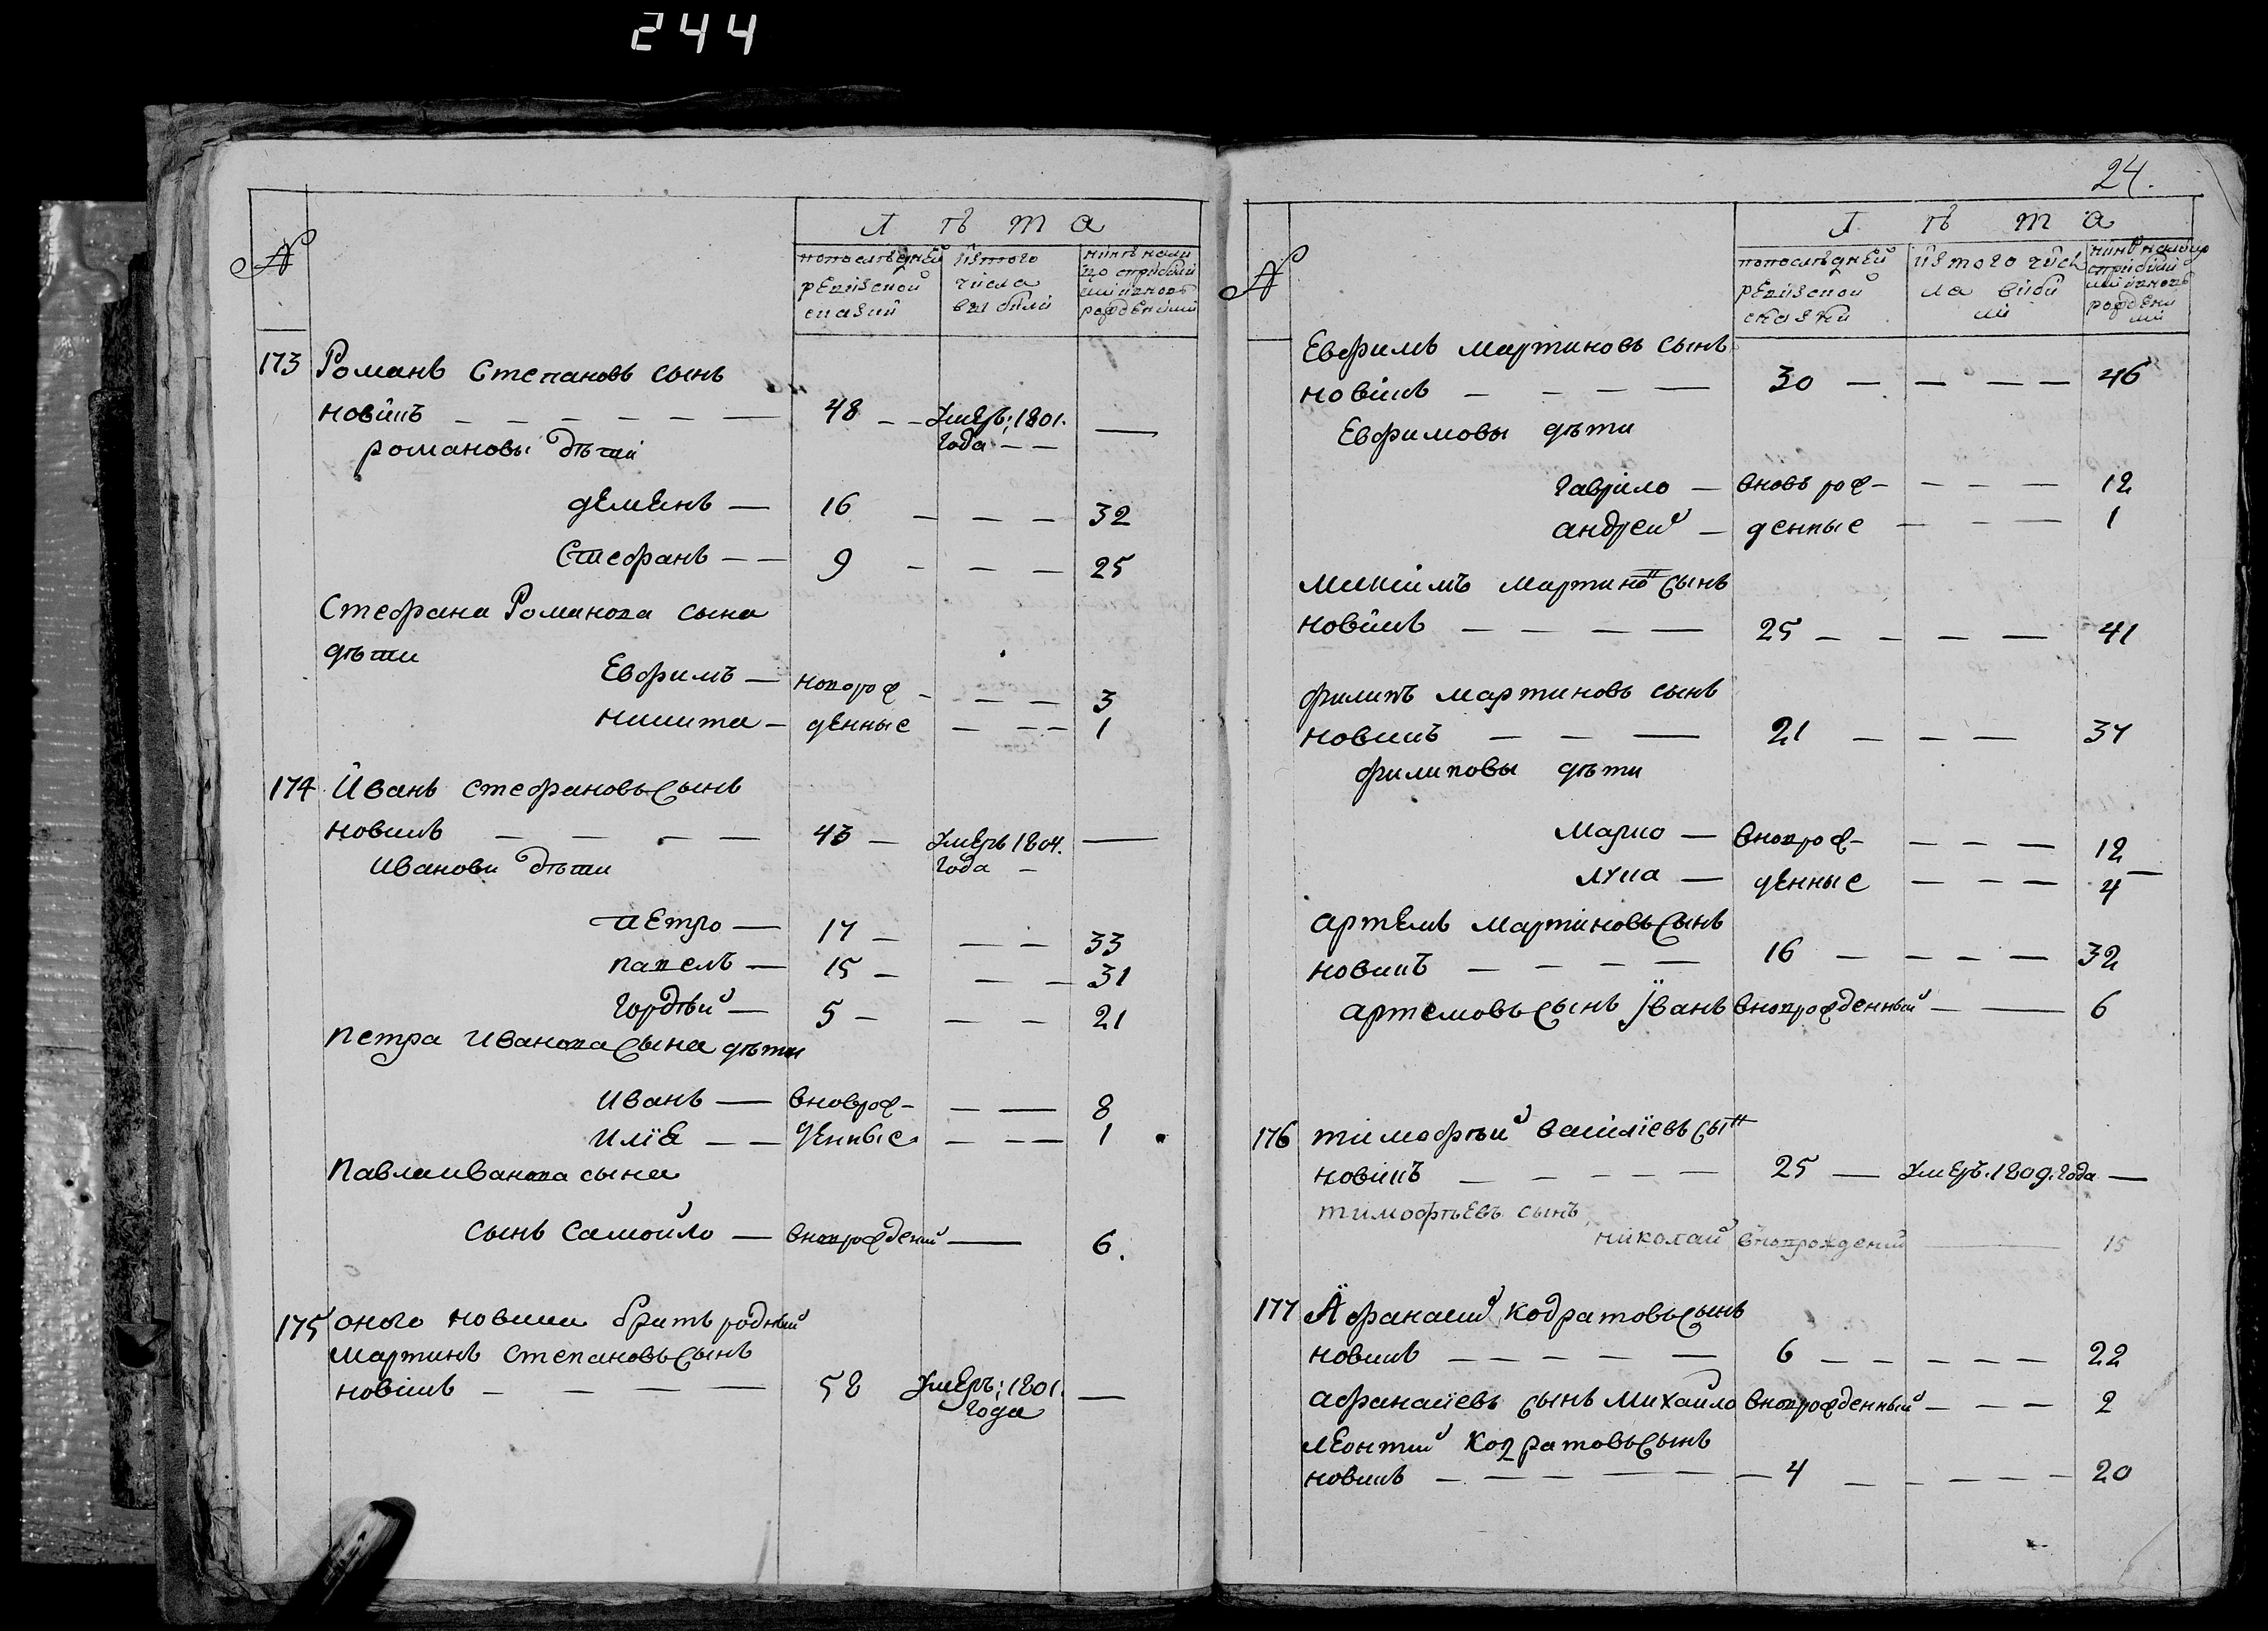 244
№
Л ѣ т а
попоследней ревизской сказки
Изтого числа выбыли
173 Романъ Степановъ сынъ
новикъ — 48 — Умеръ: 1801.
Года —
романовы дѣти
демьянъ — 16 — 32
Стефанъ — 9 — 25
Стефана Романова сына
дѣти
Евфимъ — новорож — 3
никита — денные — 1
174 Иванъ стефановъ сынъ
новикъ — 43 — Умеръ 1804.
Года —
Иванови дѣти
петро — 17 — 33
павелъ — 15 — 31
гордѣй — 5 — 21
петра иванова сына дѣти
иванъ — вноврож — 8
илїя — денные — 1
павла иванова сына
сынъ самойло — вноврожденый — 6.
175 оного новика братъ родный
мартинъ степановъ сынъ
новикъ — 58 Умеръ: 1801. —
Года
24.
№
Л ѣ т а
попоследней ревизской сказки
изтого числа выбыли
Евфимъ мартиновъ сынъ
новикъ — 30 — 46
Евфимовы дѣти
гаврило — вновь рож — 12
андрей — денные — 1
мартино сынъ
новикъ — 25 — 41
филипъ мартиновъ сынъ
новикъ — 21 — 37
филиповы дѣти
марко — вноврож — 12
лука — денные — 4
артемъ мартиновъ сынъ
новикъ — 16 — 32
артемовъ сынъ Їванъ вноврожденный — 6
176 тимофѣй василїевъ сын
новикъ — 25 — Умеръ. 1809. года —
тимофѣевъ сынъ
николай вноврождений — 15
177 Афанасий кодратовъ сынъ
новикъ — 6 — 22
афанасїевъ сынъ михайло вноврожденный — 2
леонтий кодратовъ сынъ
новикъ — 4 — 20